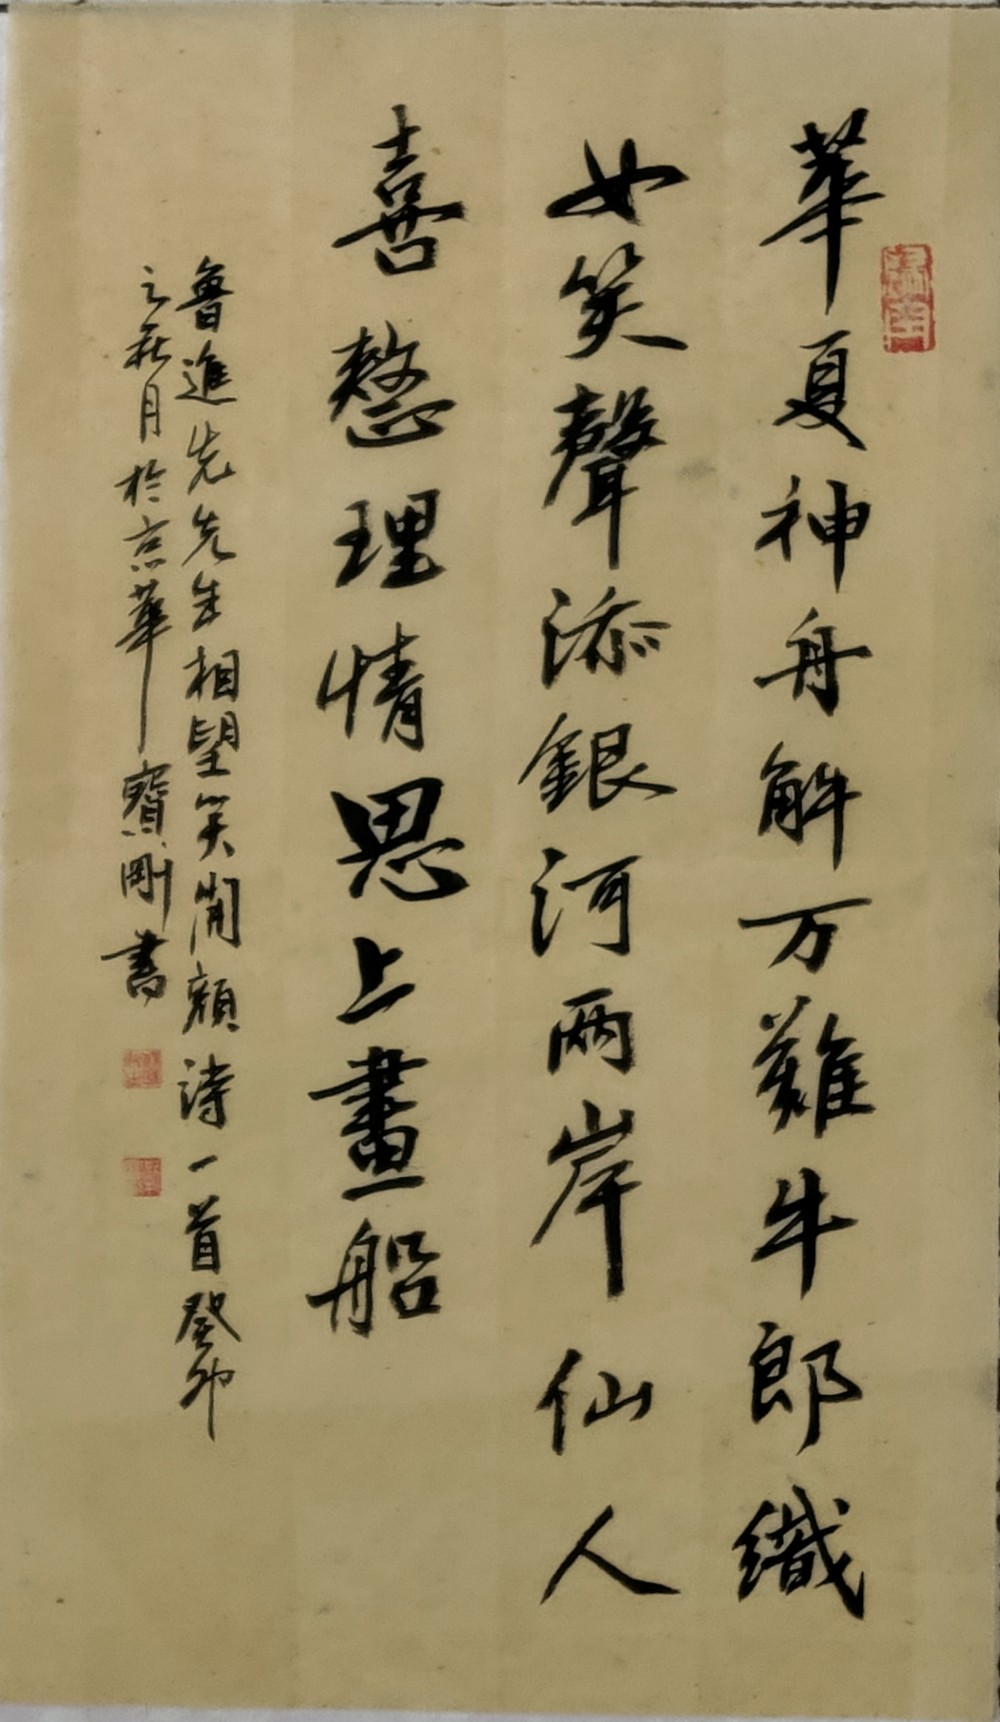 華夏神舟解万難牛郎織
女笑聲添銀河两岸仙人
喜整理情思上畫船
魯進先先生相望笑開顏詩一首癸卯
之秋月於京華寶剛書